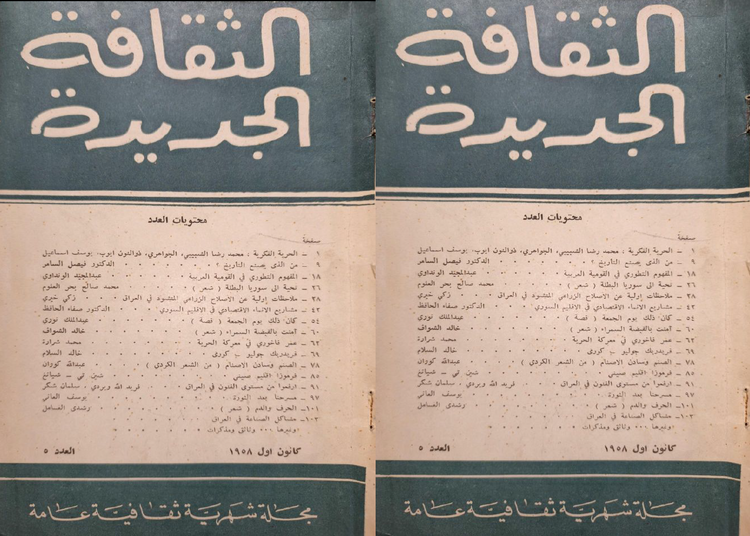 الثقافة
الجديدة
محتويات العدد
صفحة
١ ـ الحرية الفكرية : محمد رضا الشبيبي، الجواهري، ذوالنون ايوب، يوسف اسماعيل
٩ ـ من الذي يصنع التأريخ ؟ الدكتور فيصل السامر
١٨ ـ المفهوم التطوري في القومية العربية عبدالمجيد الونداوي
٢٦ ـ تحية الى سوريا البطلة ( شعر ) محمد صالح بحر العلوم
٢٨ ـ ملاحظات اولية عن الاصلاح الزراعي المنشود في العراق زكي خيري
٤٢ ـ مشاريع الانماء الاقتصادي في الاقليم السوري الدكتور صفاء الحافظ
٥٤ ـ كان ذلك يوم الجمعة ( قصة ) عبدالملك نوري
٦٠ ـ آمنت بالقبضة السمراء ( شعر ) خالد الشواف
٦٢ ـ عمر فاخوري في معركة الحرية محمد شرارة
٦٩ ـ فريدريك جوليو ـ كوري خالد السلام
٧٨ ـ الصنم وسادن الاصنام ( من الشعر الكردي ) عبدالله كوران
٨٥ ـ فرموزا اقليم صيني شين تي ـ شيانغ
٩١ ـ ارفعوا من مستوى الفنون في العراق فريد الله ويردي ـ سلمان شكر
٩٧ ـ مسرحنا بعد الثورة يوسف العاني
١٠١ ـ الحرف والدم ( شعر ) رشدي العامل
١٠٣ ـ مشاكل الصناعة في العراق
وغيرها ٠٠٠ وثائق ومذكرات
كانون اول ١٩٥٨ العدد ٥
مجلة شهرية ثقافية عامة
الثقافة
الجديدة
محتويات العدد
صفحة
١ ـ الحرية الفكرية : محمد رضا الشبيبي، الجواهري، ذوالنون ايوب، يوسف اسماعيل
٩ ـ من الذي يصنع التأريخ ؟ الدكتور فيصل السامر
١٨ ـ المفهوم التطوري في القومية العربية عبدالمجيد الونداوي
٢٦ ـ تحية الى سوريا البطلة ( شعر ) محمد صالح بحر العلوم
٢٨ ـ ملاحظات اولية عن الاصلاح الزراعي المنشود في العراق زكي خيري
٤٢ ـ مشاريع الانماء الاقتصادي في الاقليم السوري الدكتور صفاء الحافظ
٥٤ ـ كان ذلك يوم الجمعة ( قصة ) عبدالملك نوري
٦٠ ـ آمنت بالقبضة السمراء ( شعر ) خالد الشواف
٦٢ ـ عمر فاخوري في معركة الحرية محمد شرارة
٦٩ ـ فريدريك جوليو ـ كوري خالد السلام
٧٨ ـ الصنم وسادن الاصنام ( من الشعر الكردي ) عبدالله كوران
٨٥ ـ فرموزا اقليم صيني شين تي ـ شيانغ
٩١ ـ ارفعوا من مستوى الفنون في العراق فريد الله ويردي ـ سلمان شكر
٩٧ ـ مسرحنا بعد الثورة يوسف العاني
١٠١ ـ الحرف والدم ( شعر ) رشدي العامل
١٠٣ ـ مشاكل الصناعة في العراق
وغيرها ٠٠٠ وثائق ومذكرات
كانون اول ١٩٥٨ العدد ٥
مجلة شهرية ثقافية عامة